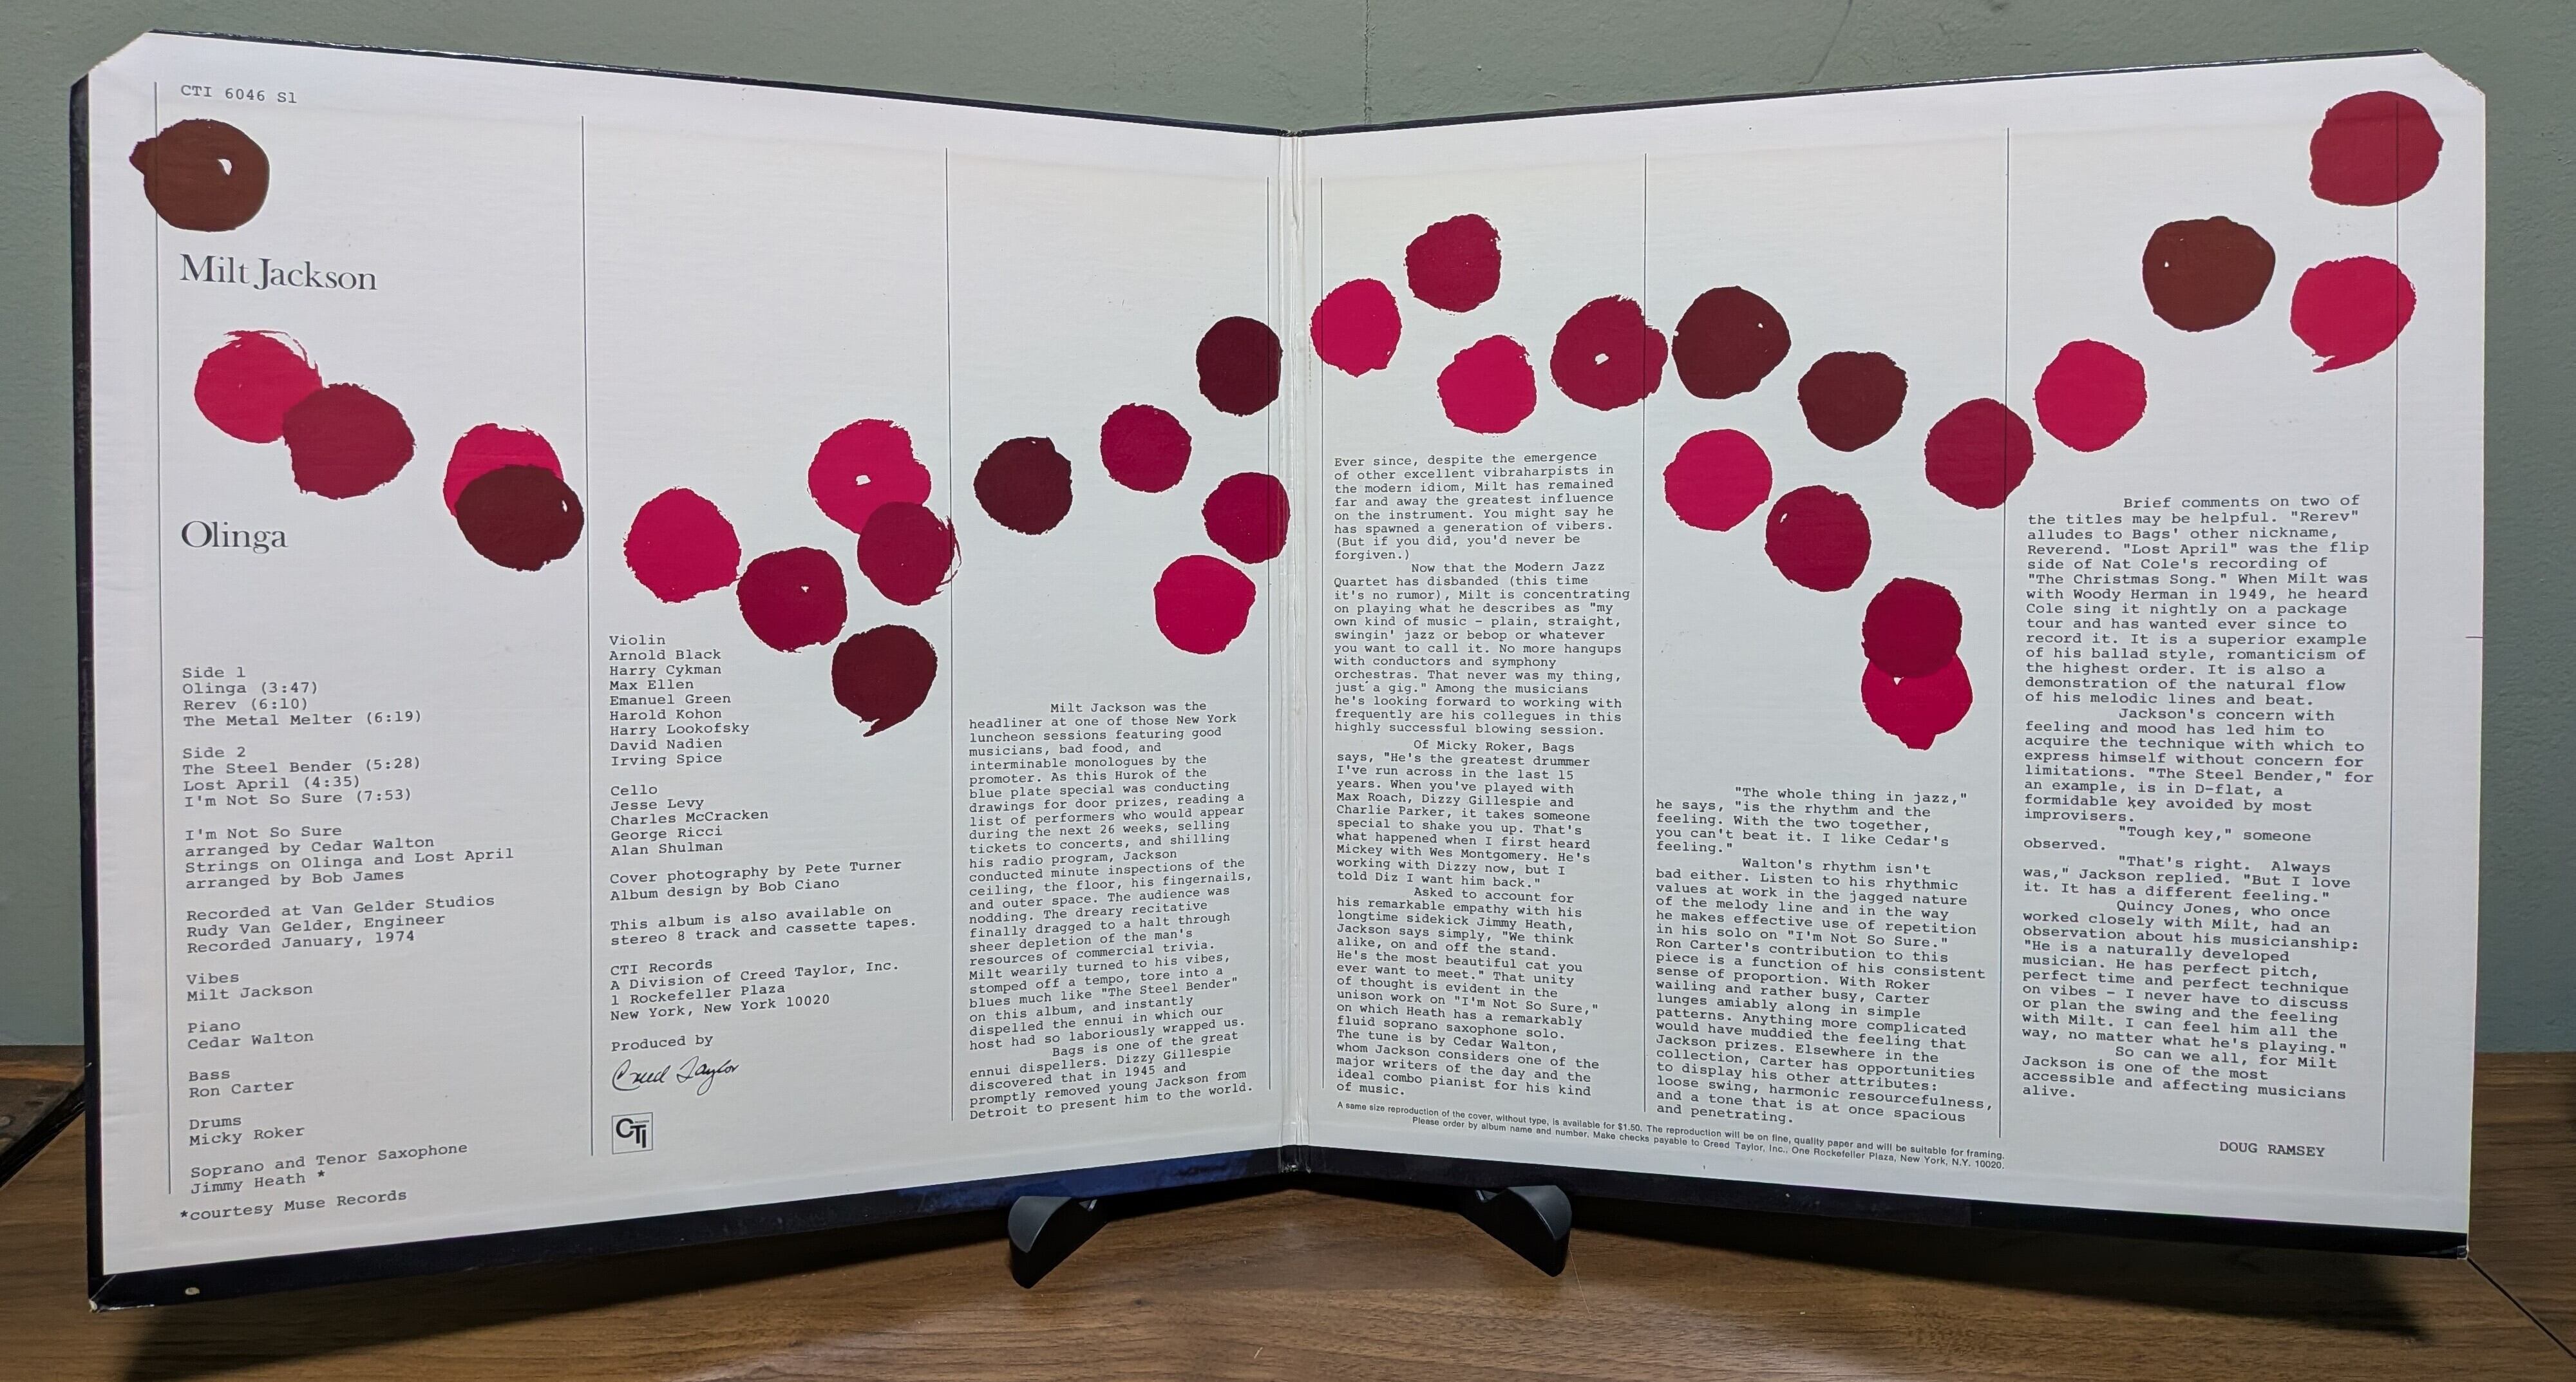 CTI 6046 S1
Milt Jackson
Olinga
Side 1
Olinga (3:47)
Rerev (6:10)
The Metal Melter (6:19)
Side 2
The Steel Bender (5:28)
Lost April (4:35)
I'm Not So Sure (7:53)
I'm Not So Sure
arranged by Cedar Walton
Strings on Olinga and Lost April
arranged by Bob James
Recorded at Van Gelder Studios
Rudy Van Gelder, Engineer
Recorded January, 1974
Vibes
Milt Jackson
Piano
Cedar Walton
Bass
Ron Carter
Drums
Micky Roker
Soprano and Tenor Saxophone
Jimmy Heath *
*courtesy Muse Records
Violin
Arnold Black
Harry Cykman
Max Ellen
Emanuel Green
Harold Kohon
Harry Lookofsky
David Nadien
Irving Spice
Cello
Jesse Levy
Charles McCracken
George Ricci
Alan Shulman
Cover photography by Pete Turner
Album design by Bob Ciano
This album is also available on
stereo 8 track and cassette tapes.
CTI Records
A Division of Creed Taylor, Inc.
1 Rockefeller Plaza
New York, New York 10020
Produced by
Creed Taylor
CTI
Milt Jackson was the
headliner at one of those New York
luncheon sessions featuring good
musicians, bad food, and
interminable monologues by the
promoter. As this Hurok of the
blue plate special was conducting
drawings for door prizes, reading a
list of performers who would appear
during the next 26 weeks, selling
tickets to concerts, and shilling
his radio program, Jackson
conducted minute inspections of the
ceiling, the floor, his fingernails,
and outer space. The audience was
nodding. The dreary recitative
finally dragged to a halt through
sheer depletion of the man's
resources of commercial trivia.
Milt wearily turned to his vibes,
stomped off a tempo, tore into a
blues much like "The Steel Bender"
on this album, and instantly
dispelled the ennui in which our
host had so laboriously wrapped us.
Bags is one of the great
ennui dispellers. Dizzy Gillespie
discovered that in 1945 and
promptly removed young Jackson from
Detroit to present him to the world.
Ever since, despite the emergence
of other excellent vibraharpists in
the modern idiom, Milt has remained
far and away the greatest influence
on the instrument. You might say he
has spawned a generation of vibers.
(But if you did, you'd never be
forgiven.)
Now that the Modern Jazz
Quartet has disbanded (this time
it's no rumor), Milt is concentrating
on playing what he describes as "my
own kind of music - plain, straight,
swingin' jazz or bebop or whatever
you want to call it. No more hangups
with conductors and symphony
orchestras. That never was my thing,
just a gig." Among the musicians
he's looking forward to working with
frequently are his collegues in this
highly successful blowing session.
Of Micky Roker, Bags
says, "He's the greatest drummer
I've run across in the last 15
years. When you've played with
Max Roach, Dizzy Gillespie and
Charlie Parker, it takes someone
special to shake you up. That's
what happened when I first heard
Mickey with Wes Montgomery. He's
working with Dizzy now, but I
told Diz I want him back."
Asked to account for
his remarkable empathy with his
longtime sidekick Jimmy Heath,
Jackson says simply, "We think
alike, on and off the stand.
He's the most beautiful cat you
ever want to meet." That unity
of thought is evident in the
unison work on "I'm Not So Sure,"
on which Heath has a remarkably
fluid soprano saxophone solo.
The tune is by Cedar Walton,
whom Jackson considers one of the
major writers of the day and the
ideal combo pianist for his kind
of music.
"The whole thing in jazz,"
he says, "is the rhythm and the
feeling. With the two together,
you can't beat it. I like Cedar's
feeling."
Walton's rhythm isn't
bad either. Listen to his rhythmic
values at work in the jagged nature
of the melody line and in the way
he makes effective use of repetition
in his solo on "I'm Not So Sure."
Ron Carter's contribution to this
piece is a function of his consistent
sense of proportion. With Roker
wailing and rather busy, Carter
lunges amiably along in simple
patterns. Anything more complicated
would have muddied the feeling that
Jackson prizes. Elsewhere in the
collection, Carter has opportunities
to display his other attributes:
loose swing, harmonic resourcefulness,
and a tone that is at once spacious
and penetrating.
Brief comments on two of
the titles may be helpful. "Rerev"
alludes to Bags' other nickname,
Reverend. "Lost April" was the flip
side of Nat Cole's recording of
"The Christmas Song." When Milt was
with Woody Herman in 1949, he heard
Cole sing it nightly on a package
tour and has wanted ever since to
record it. It is a superior example
of his ballad style, romanticism of
the highest order. It is also a
demonstration of the natural flow
of his melodic lines and beat.
Jackson's concern with
feeling and mood has led him to
acquire the technique with which to
express himself without concern for
limitations. "The Steel Bender," for
an example, is in D-flat, a
formidable key avoided by most
improvisers.
"Tough key," someone
observed.
"That's right. Always
was," Jackson replied. "But I love
it. It has a different feeling."
Quincy Jones, who once
worked closely with Milt, had an
observation about his musicianship:
"He is a naturally developed
musician. He has perfect pitch,
perfect time and perfect technique
on vibes - I never have to discuss
or plan the swing and the feeling
with Milt. I can feel him all the
way, no matter what he's playing."
So can we all, for Milt
Jackson is one of the most
accessible and affecting musicians
alive.
DOUG RAMSEY
A same size reproduction of the cover, without type, is available for $1.50. The reproduction will be on fine, quality paper and will be suitable for framing.
Please order by album name and number. Make checks payable to Creed Taylor, Inc., One Rockefeller Plaza, New York, N.Y. 10020.